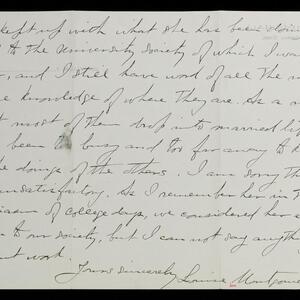 kept up with what she has been doing
the University society of which I was
and I still have word of all the
knowledge of where they are. As a
most of them drop into married li
been to busy and too far away to k
the doings of the others. I am sorry th
unsatisfactory. As I remember her in t
of college days, we considered her
to our society, but I can not say anyth
work.
Yours sincerely Louise Montgom